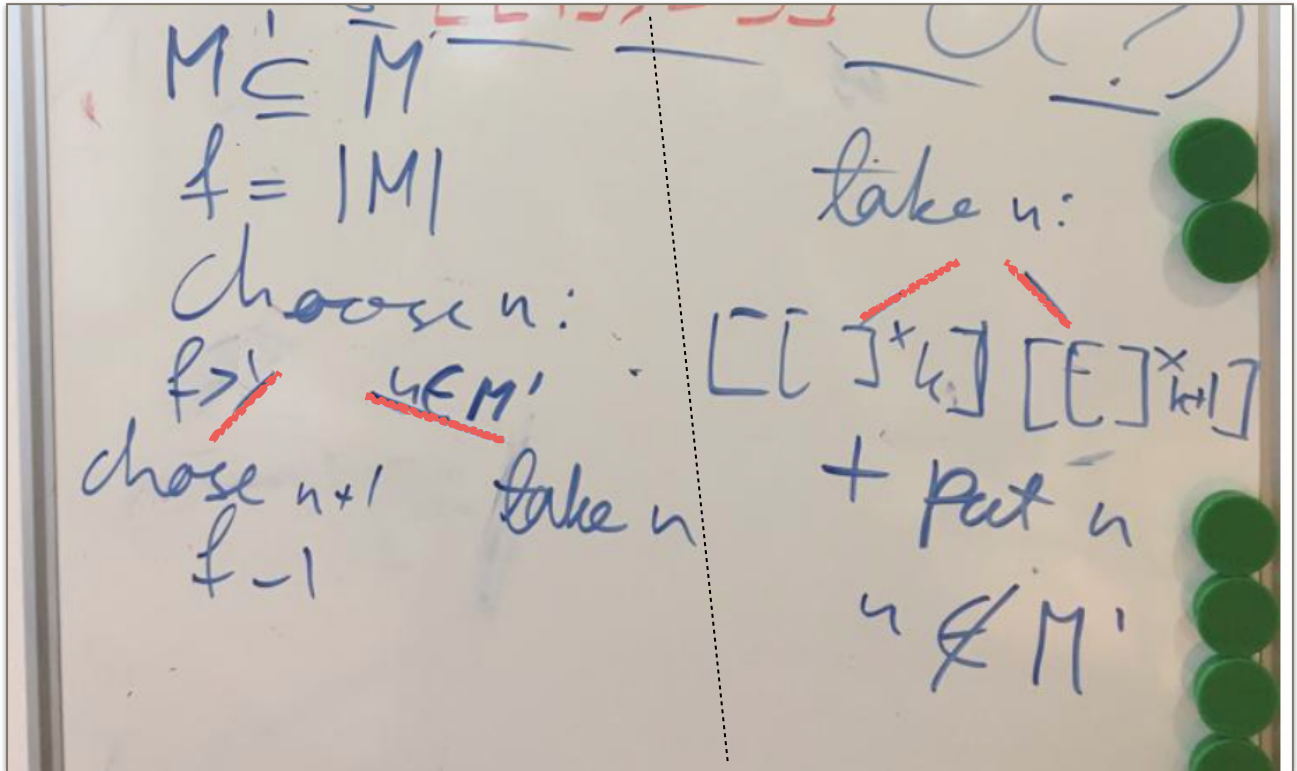 M' ⊆ M
f = |M|
Choose n:
f>1 n∈M'
chose n+1 take n
f-1
take n:
[[ ]×k] [[ ]×k+1]
+ put n
n ∉ M'